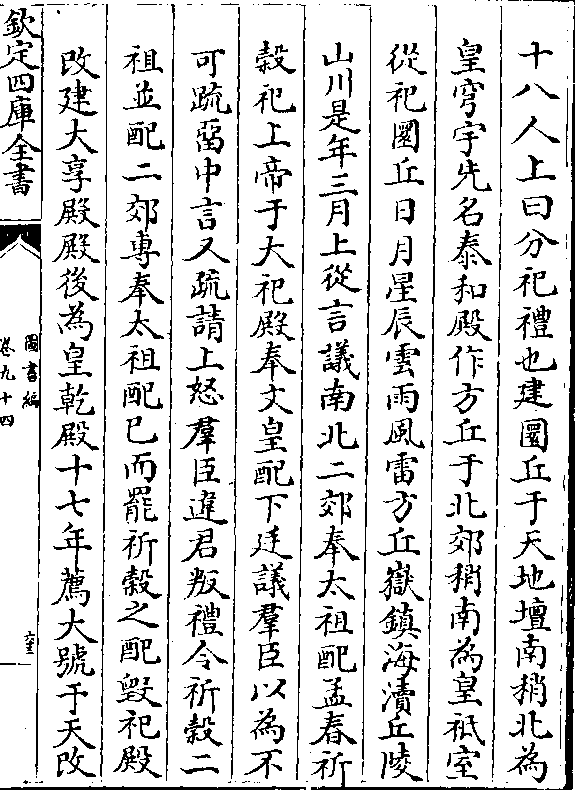 十八人上曰分祀禮也建圜丘于天地壇南稍北為
皇穹宇先名泰和殿作方丘于北郊稍南為皇祇室
從祀圜丘日月星辰雲雨風雷方丘嶽鎮海瀆丘陵
山川是年三月上從言議南北二郊奉太祖配孟春祈
穀祀上帝于大祀殿奉文皇配下廷議羣臣以為不
可疏畱中言又疏請上怒羣臣違君叛禮令祈穀二
祖並配二郊專奉太祖配已而罷祈穀之配毀祀殿
改建大享殿殿後為皇乾殿十七年薦大號于天改
欽定四庫全書
圖書編
卷九十四